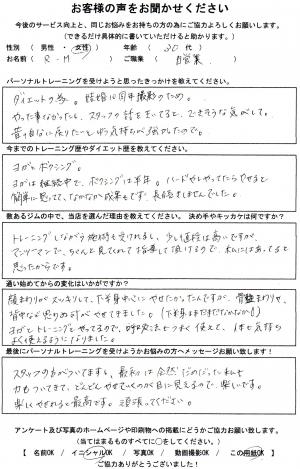 お客様の声をお聞かせください
今後のサービス向上と、同じお悩みをお持ちの方の為にご協力よろしくお願いします。
(できるだけ具体的に書いていただけると助かります。)
性別 ( 男性 ・ 女性 ) 年齢 ( 30 代 )
お名前 ( R・M ) ご職業 ( 自営業 )
パーソナルトレーニングを受けようと思ったきっかけを教えてください。
ダイエットの為。結婚10周年撮影のため。
やった事なかったし、スタッフの話をきいてると、できそうな気がして。
昔の自分に戻りたいという気持ちが強かったので。
今までのトレーニング歴やダイエット歴を教えてください。
ヨガ、ボクシング。
ヨガは継続中で、ボクシングは半年。ハードだしやってたらやせると
簡単に思ってて、なかなか成果もでず、長続きしませんでした。
数あるジムの中で、当店を選んだ理由を教えてください。 決め手やキッカケは何ですか?
トレーニングしながら施術も受けれるし、少し値段は高いですが、
マンツーマンで、ちゃんと見てくれて指導して頂けるので、私にはあってると
思ったからです。
通い始めてからの変化はいかがですか?
腰まわりがスッキリして、下半身中心にやせたかったんですが、
背中など思わぬ所がやせてきました。
ヨガもトレーニングもやってるので、呼吸法もうまく使えて、体も気持ち
よく使えるようになりました。
最後にパーソナルトレーニングを受けようかお悩みの方へメッセージお願い致します!
スタッフの方がついてますし、最初は全然ダメだった私も
力もついてきて、どんどんやせていくのが目に見えるので、楽しいです。
楽しくやせれると最高です。頑張ってください。
アンケート及び写真のホームページや印刷物への掲載にどうかご協力お願い致します。
(当てはまるものすべてに○をしてください。)
【 名前OK / イニシャルOK / 写真OK / 動画撮影OK / この用紙OK 】
ご協力ありがとうございました!